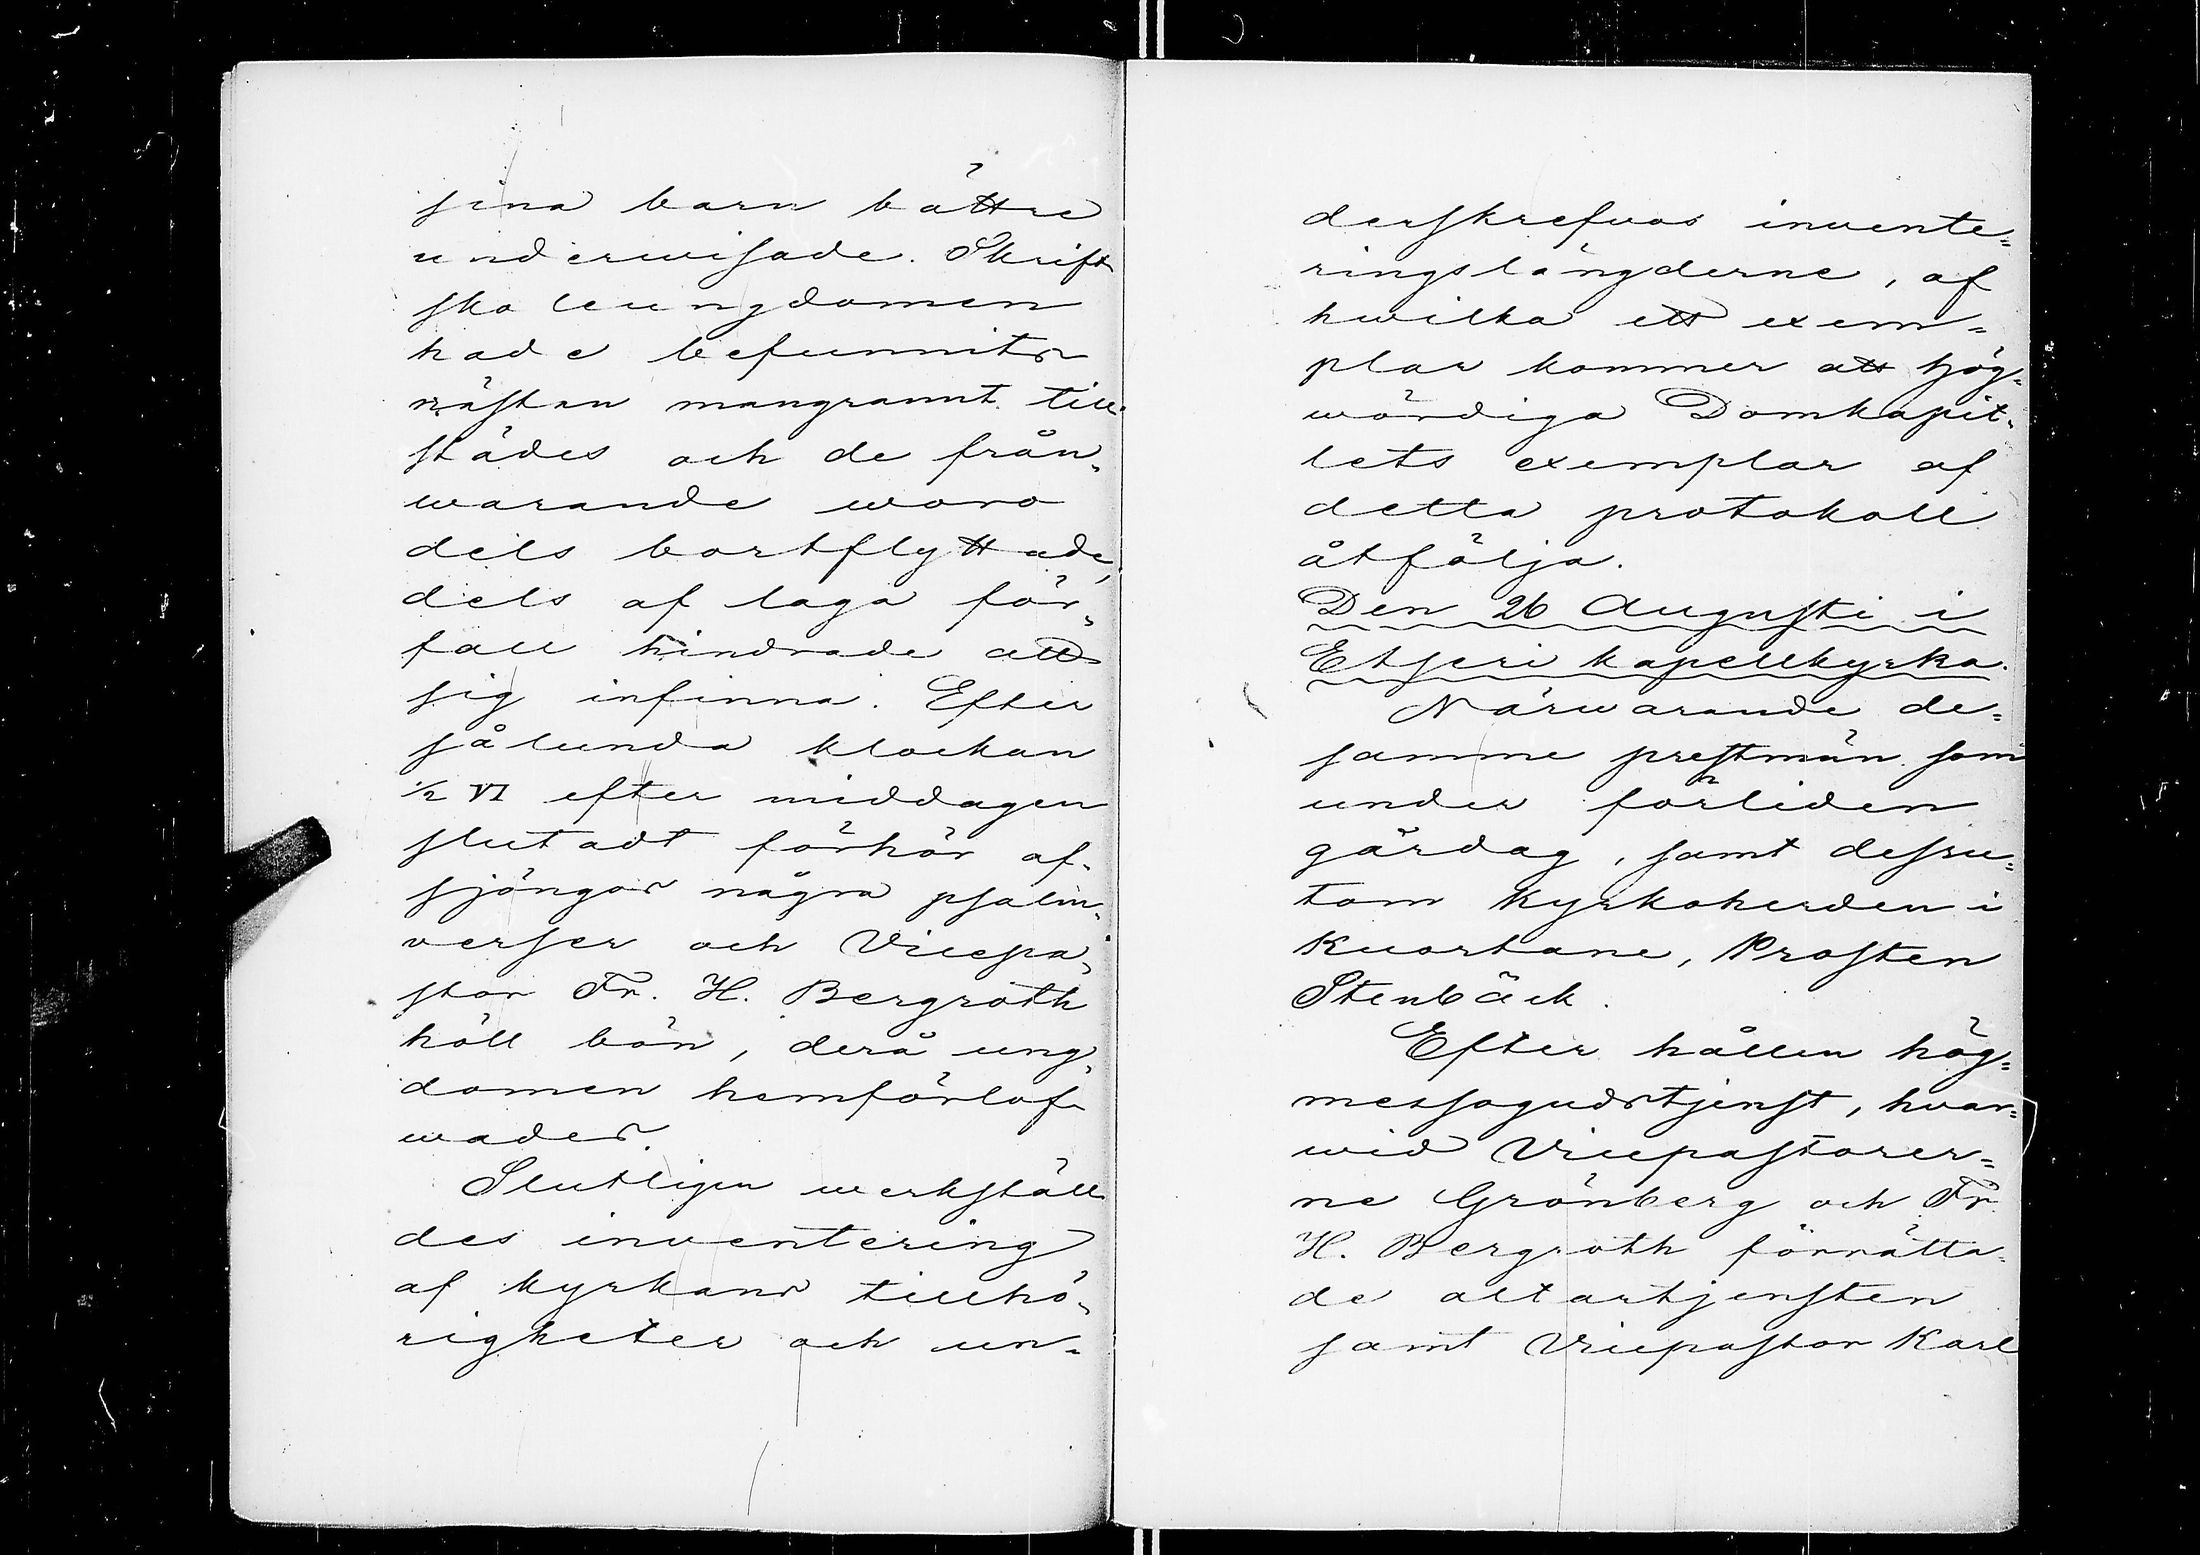 sina barn bättre
underwisade. Skrift
skoleungdomen
hade befunnits
nästan mangrannt till
städes och de från-
warande woro
dels bortflyttade,
dels af laga för-
fall hindrade att
sig infinna. Efter
sålunda klockan
½ VI efter middagen
slutadt förhör af-
sjöngos några psalm-
verser och Vicepa-
stor Fr. H. Bergroth
höll bön, derå ung-
domen hemförlof-
wades.
Slutligen werkställ-
des inventering
af kyrkans tillhö-
righeter och un-
derskrefvos invente-
ringslängderne, af
hwilka ett exem-
plar kommer att Hög-
wördiga Domkapit-
lets exemplar af
detta protokoll
åtfölja.
Den 26 Augusti i
Etseri kapellkyrka.
Närwarande de-
samme prestmän som
under förliden
gårdag, samt dessu-
tom Kyrkoherden i
Kuortane, Prosten
Stenbäck.
Efter hållen hög-
messogudstjenst, hvar-
wid Vicepastorer-
ne Grönberg och Fr.
H. Bergroth förrätta-
de altartjensten
samt Vicepastor Karl